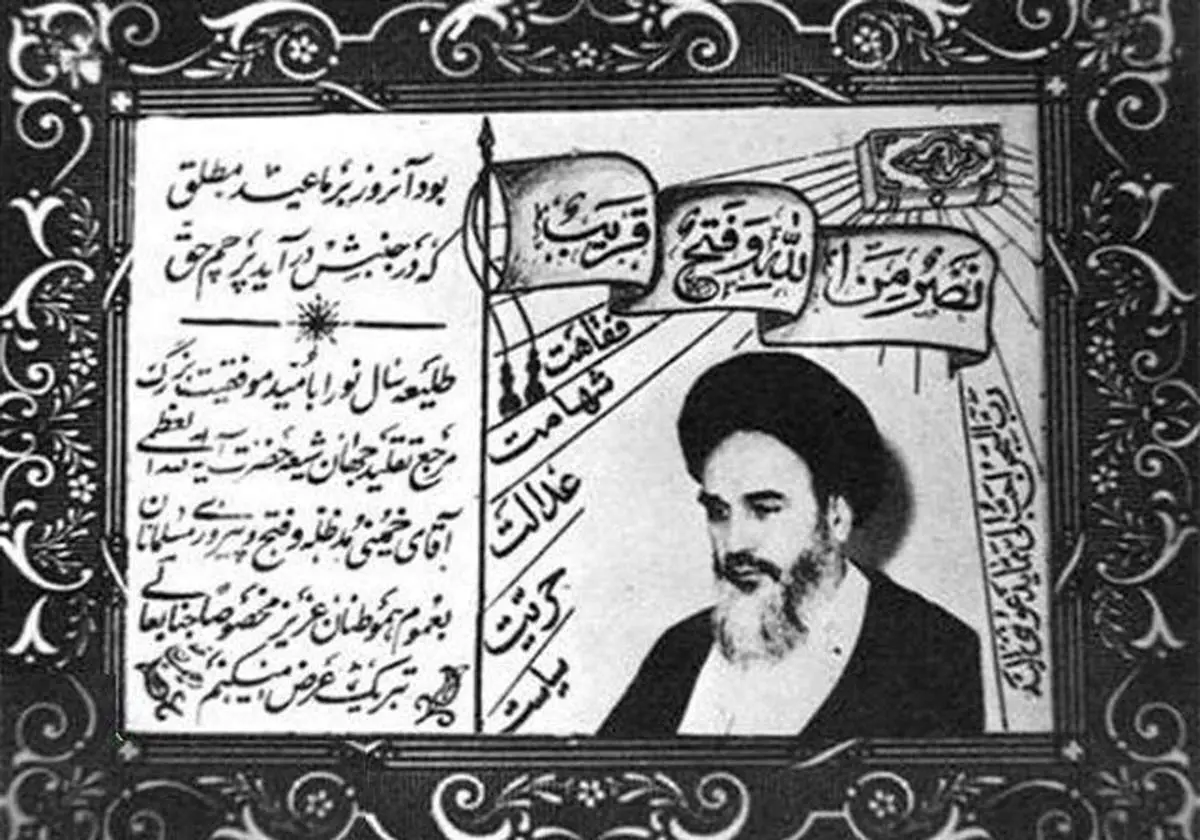 نَصْرٌ مِنَ اللهِ وَ فَتْحٌ قَرِیبٌ
فقاهت
شهامت
عدالت
حریت
سیاست
بود آنروز بر ما عید مطلق
که در جنبش در آید پرچم حق
طلیعه سال نو را با امید موفقیت بزرگ
مرجع تقلید جهان شیعه حضرت آیة الله العظمی
آقای خمینی مد ظله و فتح و پیروزی مسلمانان
بعموم هموطنان عزیز مخصوصا جنابعالی
تبریک عرض میکنیم